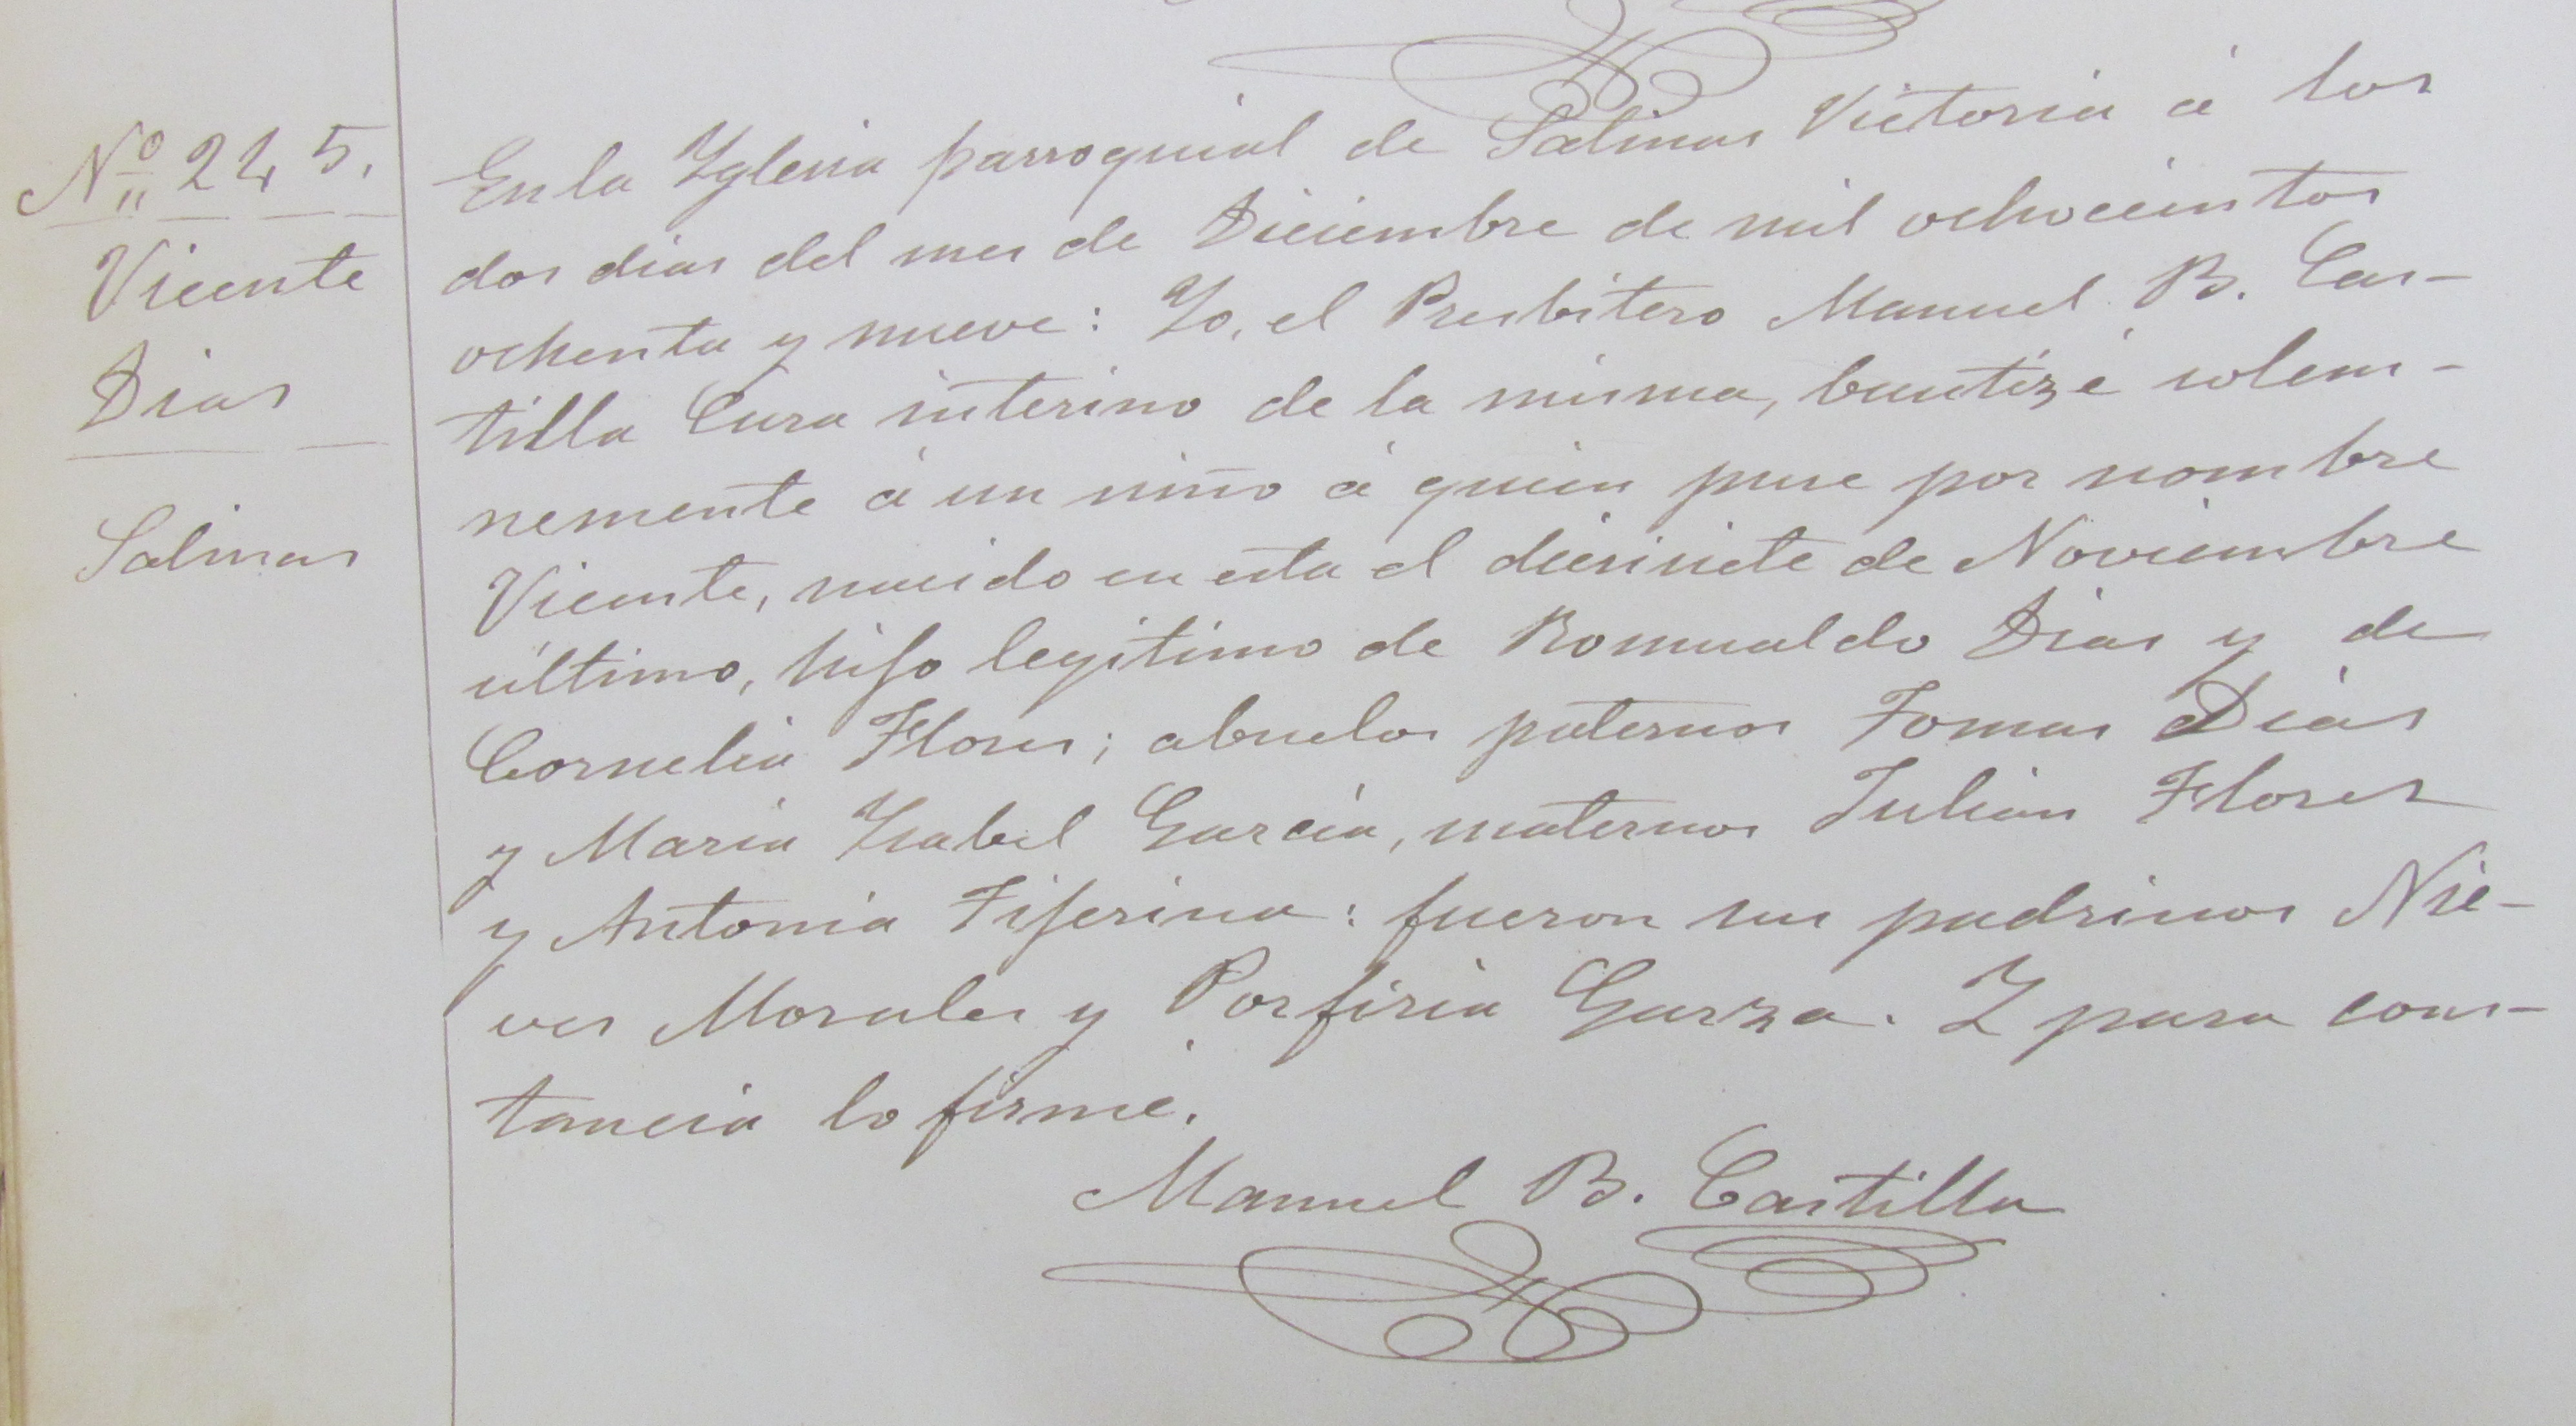 Nº 245.
Vicente
Dias
Salinas
En la Yglesia parroquial de Salinas Victoria á los
dos dias del mes de Diciembre de mil ochocientos
ochenta y nueve: Yo, el Presbitero Manuel B. Cas-
tilla Cura interino de la misma, bautizé solem-
nemente á un niño á quien puse por nombre
Vicente, nacido en esta el diesisiete de Noviembre
último, hijo legítimo de Romualdo Dias y de
Cornelia Flores; abuelos paternos Tomas Dias
y Maria Ysabel Garcia, maternos Julian Flores
y Antonia Tijerina: fueron sus padrinos Nie-
ves Morales y Porfiria Garza. Y para cons-
tancia lo firmé.
Manuel B. Castilla